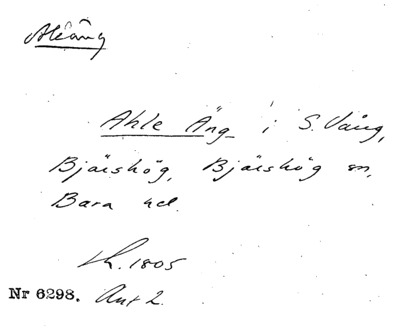 Aleäng
Ahle Äng i S. Vång,
Bjärshög, Bjärshög sn,
Bara hd.
Lh. 1805
Nr 6298. Akt 2.